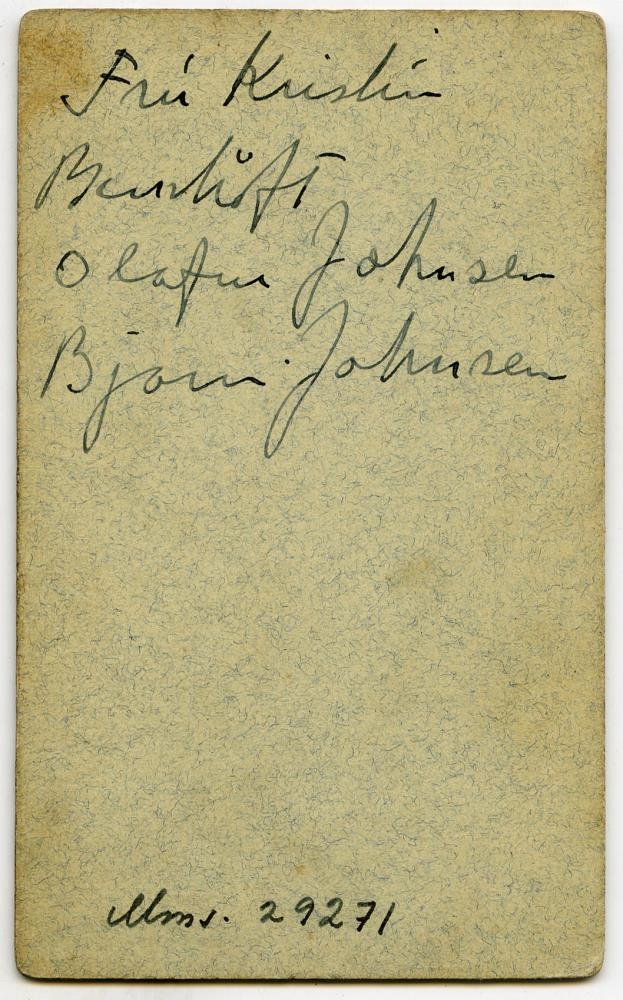 Frú Kristín
Bernhöft
Olafur Johnsen
Björn Johnsen
Mms. 29271